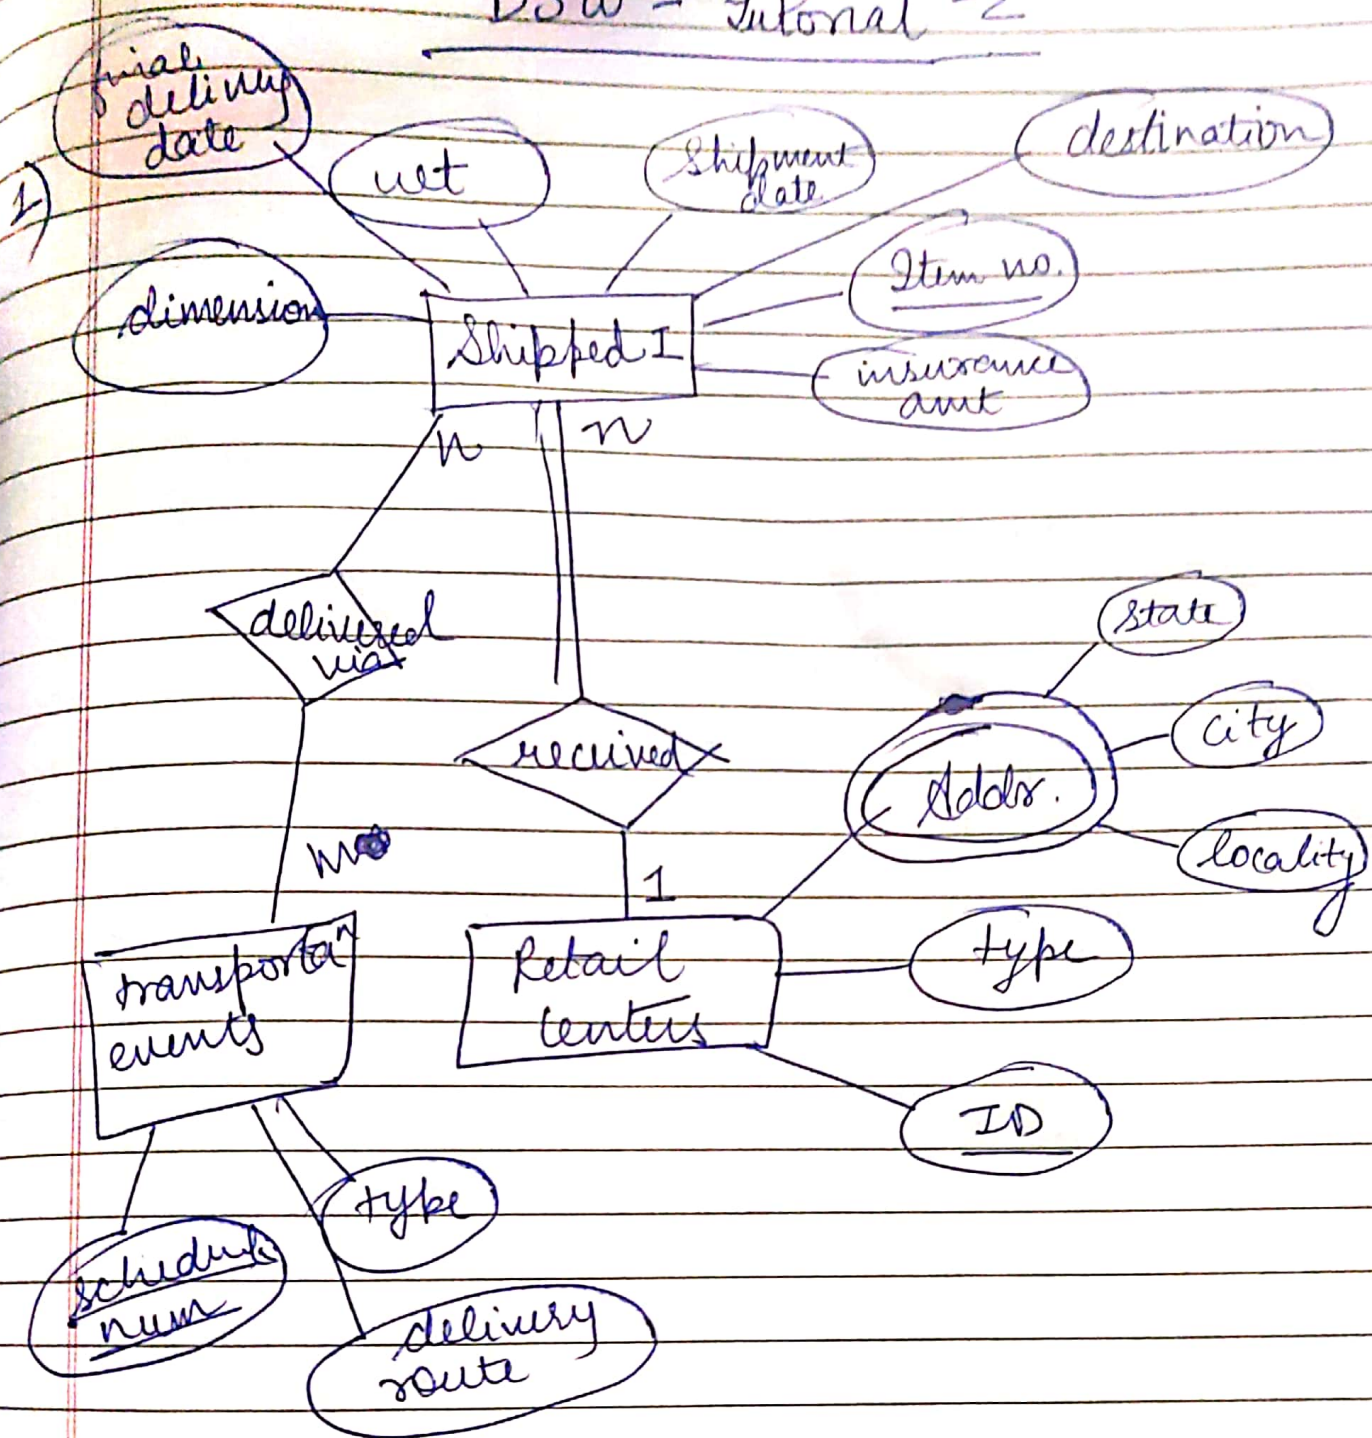 Tutorial - 2
1)
final
delivery
date
wt
Shipment
date
destination
dimension
Shipped I
Item no.
insurance
amt
n
n
delivered
via
received
state
city
Addr.
locality
m
1
transporta^n
events
Retail
Centers
type
ID
schedule
num
type
delivery
route